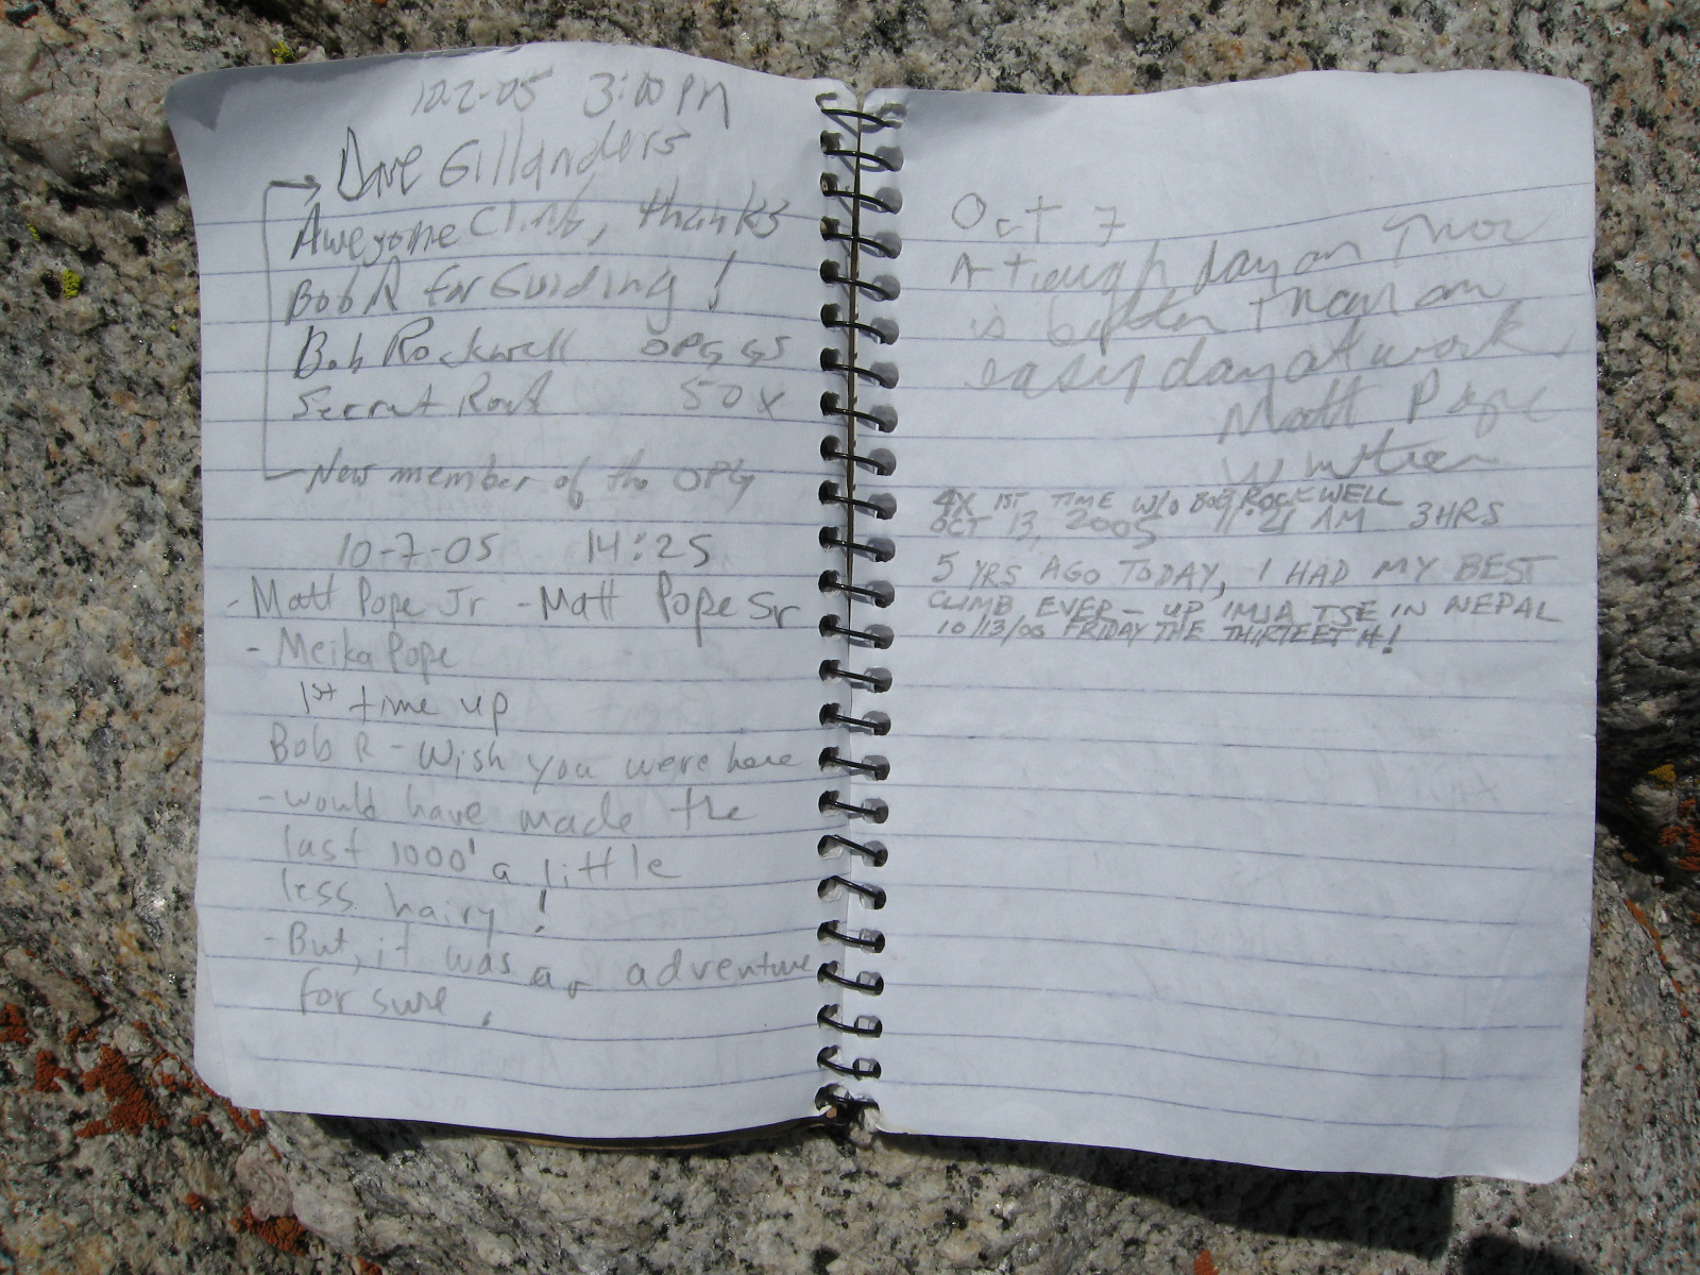 10-2-05 3:00 PM
Dave Gillanders
Awesome Climb, thanks
Bob R for Guiding!
Bob Rockwell OPG GS
50X
New member of the OPG
10-7-05 14:25
- Matt Pope Jr - Matt Pope Sr
- Meika Pope
1st time up
Bob R - Wish you were here
- would have made the
last 1000' a little
less hairy!
- But, it was an adventure
for sure.
Oct 7
A tough day on
is better than an
easy day at work
Matt Pope
4X 1ST TIME W/O BOB ROCKWELL
OCT 13, 2005 11:21 AM 3HRS
5 YRS AGO TODAY, I HAD MY BEST
CLIMB EVER - UP IMJA TSE IN NEPAL
10/13/00 FRIDAY THE THIRTEETH!